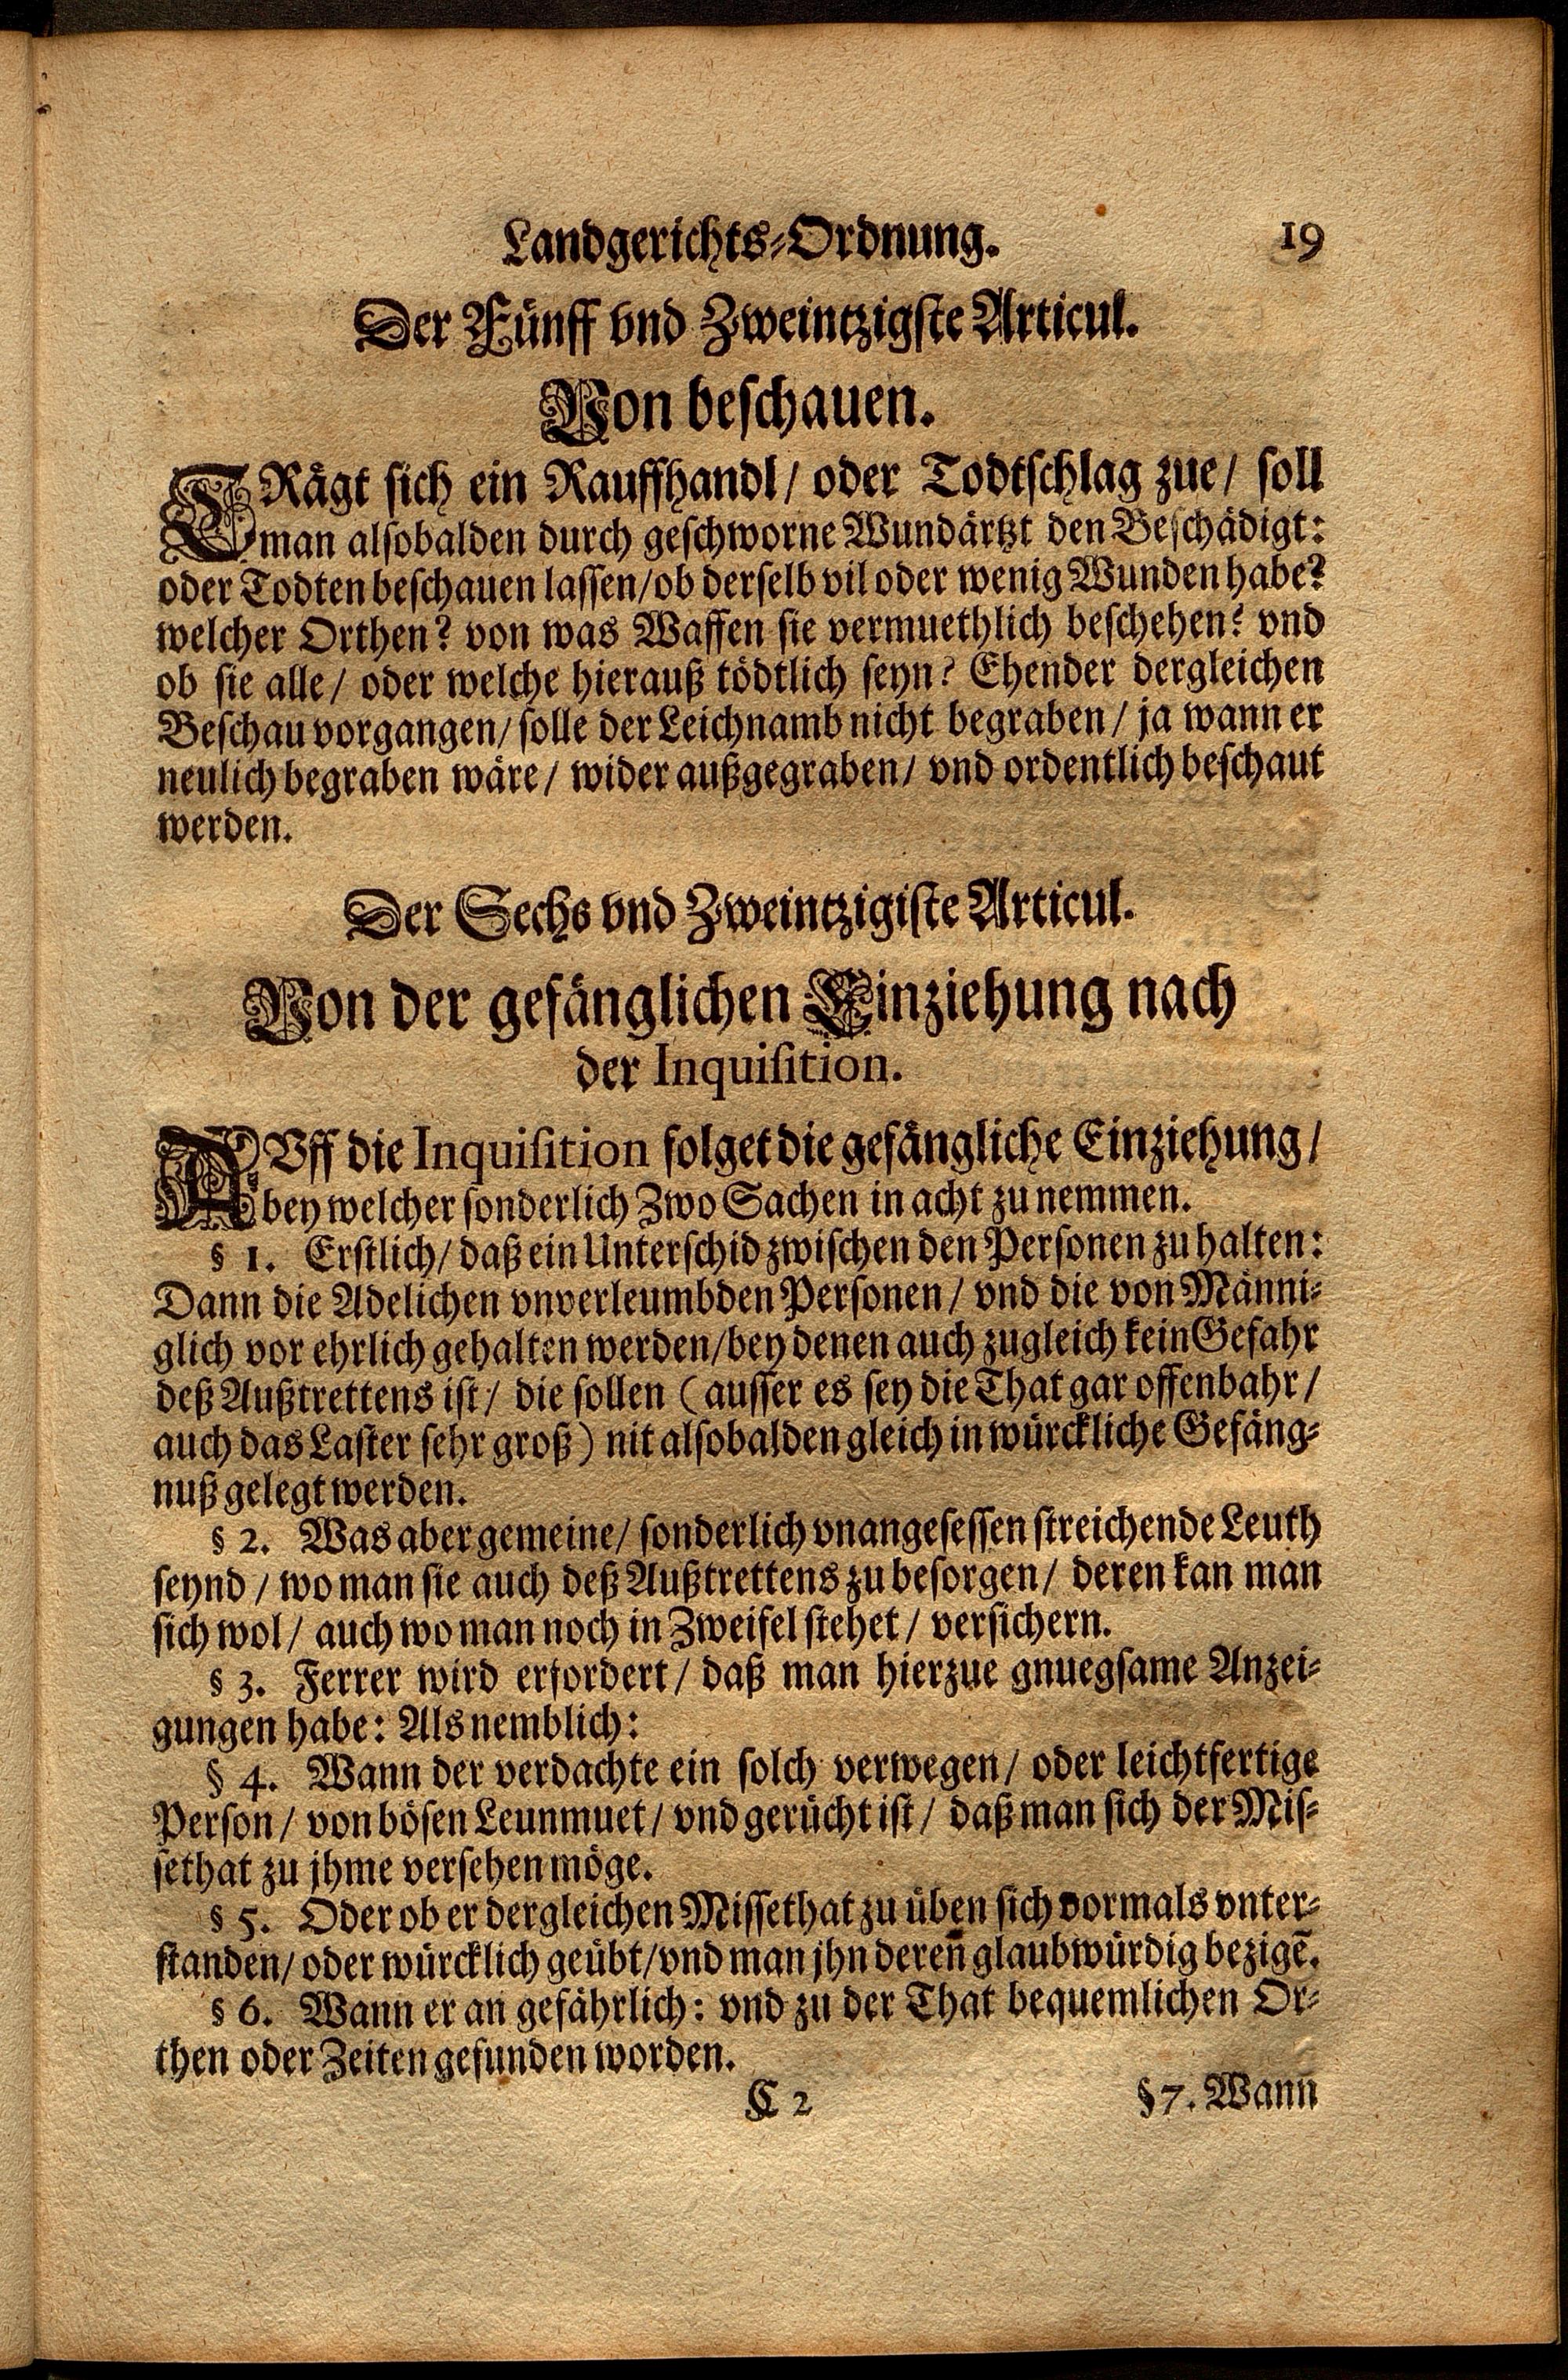 Landgerichts-Ordnung. 19
Der Fünff vnd Zweintzigste Articul.
Von beschauen.
TRägt sich ein Rauffhandl / oder Todtschlag zue / soll
man alsobalden durch geschworne Wundärtzt den Beschädigt:
oder Todten beschauen lassen / ob derselb vil oder wenig Wunden habe?
welcher Orthen? von was Waffen sie vermuethlich beschehen? vnd
ob sie alle / oder welche hierauß tödtlich seyn? Ehender dergleichen
Beschau vorgangen / solle der Leichnamb nicht begraben / ja wann er
neulich begraben wäre / wider außgegraben / vnd ordentlich beschaut
werden.
Der Sechs vnd Zweintzigiste Articul.
Von der gefänglichen Einziehung nach
der Inquisition.
AVff die Inquisition folget die gefängliche Einziehung /
bey welcher sonderlich Zwo Sachen in acht zu nemmen.
§ 1. Erstlich / daß ein Unterschid zwischen den Personen zu halten:
Dann die Adelichen vnverleumbden Personen / vnd die von Männi-
glich vor ehrlich gehalten werden / bey denen auch zugleich kein Gefahr
deß Außtrettens ist / die sollen (ausser es sey die That gar offenbahr /
auch das Laster sehr groß) nit alsobalden gleich in würckliche Gefäng-
nuß gelegt werden.
§ 2. Was aber gemeine / sonderlich vnangesessen streichende Leuth
seynd / wo man sie auch deß Außtrettens zu besorgen / deren kan man
sich wol / auch wo man noch in Zweifel stehet / versichern.
§ 3. Ferrer wird erfordert / daß man hierzue gnuegsame Anzei-
gungen habe: Als nemblich:
§ 4. Wann der verdachte ein solch verwegen / oder leichtfertige
Person / von bösen Leunmuet / vnd gerücht ist / daß man sich der Mis-
sethat zu jhme versehen möge.
§ 5. Oder ob er dergleichen Missethat zu üben sich vormals vnter-
standen / oder würcklich geübt / vnd man jhn dereñ glaubwürdig bezigẽ.
§ 6. Wann er an gefährlich: vnd zu der That bequemlichen Or-
then oder Zeiten gefunden worden.
C 2 § 7. Wann